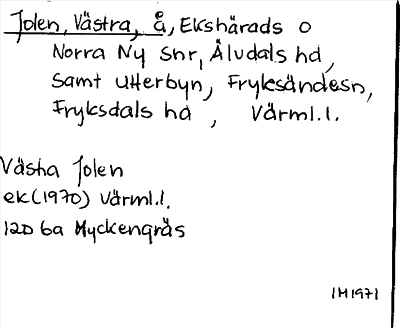 Jolen, Västra, å, Ekshärads o
Norra Ny snr, Älvdals hd,
samt Utterbyn, Fryksändesn,
Fryksdals hd, Värml.l.
Västra Jolen
ek(1970) Värml.l.
12D 6a Myckengräs
IM1971